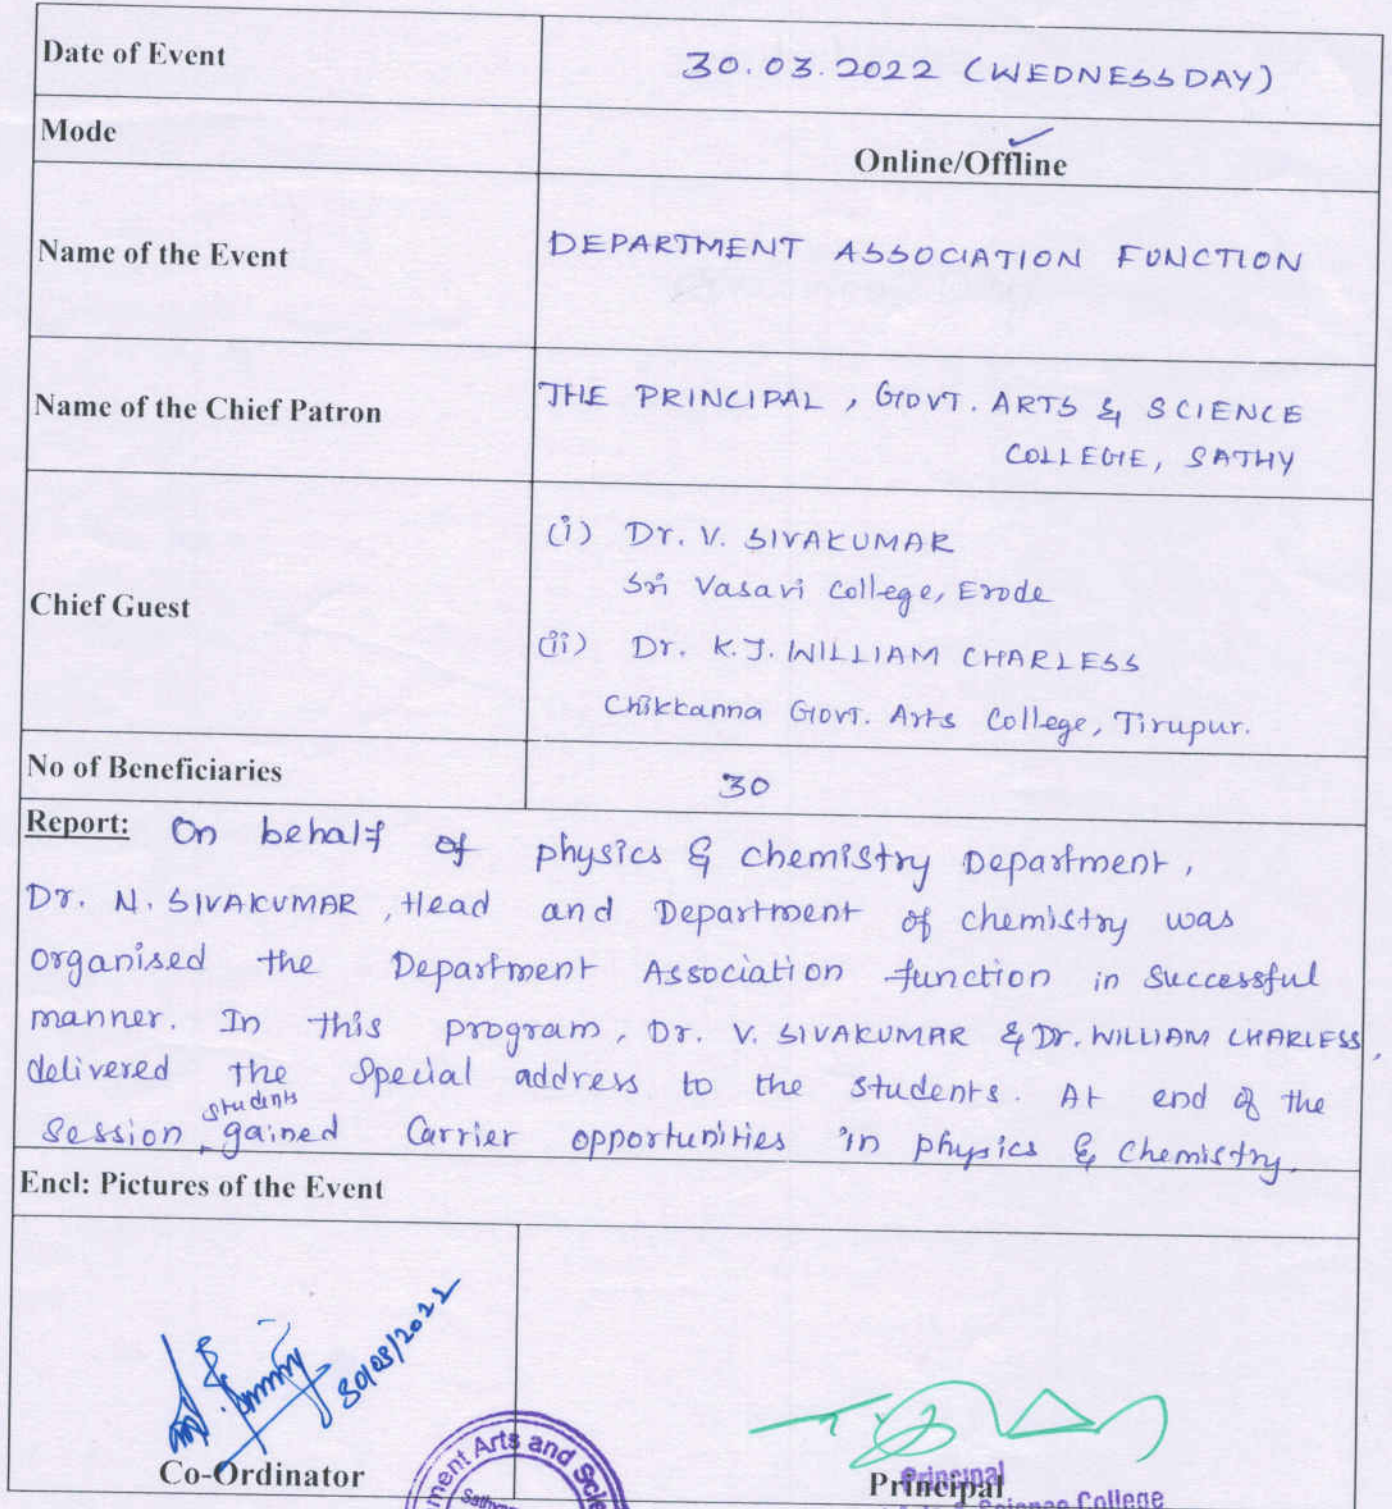 Date of Event
30.03.2022 (WEDNESSDAY)
Mode
Online/Offline
Name of the Event
DEPARTMENT ASSOCIATION FUNCTION
Name of the Chief Patron
THE PRINCIPAL, GOVT. ARTS & SCIENCE
COLLEGE, SATHY
Chief Guest
(i) Dr. V. SIVAKUMAR
Sri Vasavi College, Erode
(ii) Dr. K.J. WILLIAM CHARLESS
Chikkanna Govt. Arts College, Tirupur.
No of Beneficiaries
30
Report: On behalf of physics & chemistry Department,
Dr. N. SIVAKUMAR, Head and Department of chemistry was
organised the Department Association function in Successful
manner. In this program, Dr. V. SIVAKUMAR & Dr. WILLIAM CHARLESS,
delivered the Special address to the students. At end of the
Session, students gained Carrier opportunities in physics & chemistry.
Encl: Pictures of the Event
30/03/2022
Co-Ordinator
ment Arts and Sci
Principal
Principal
Science College